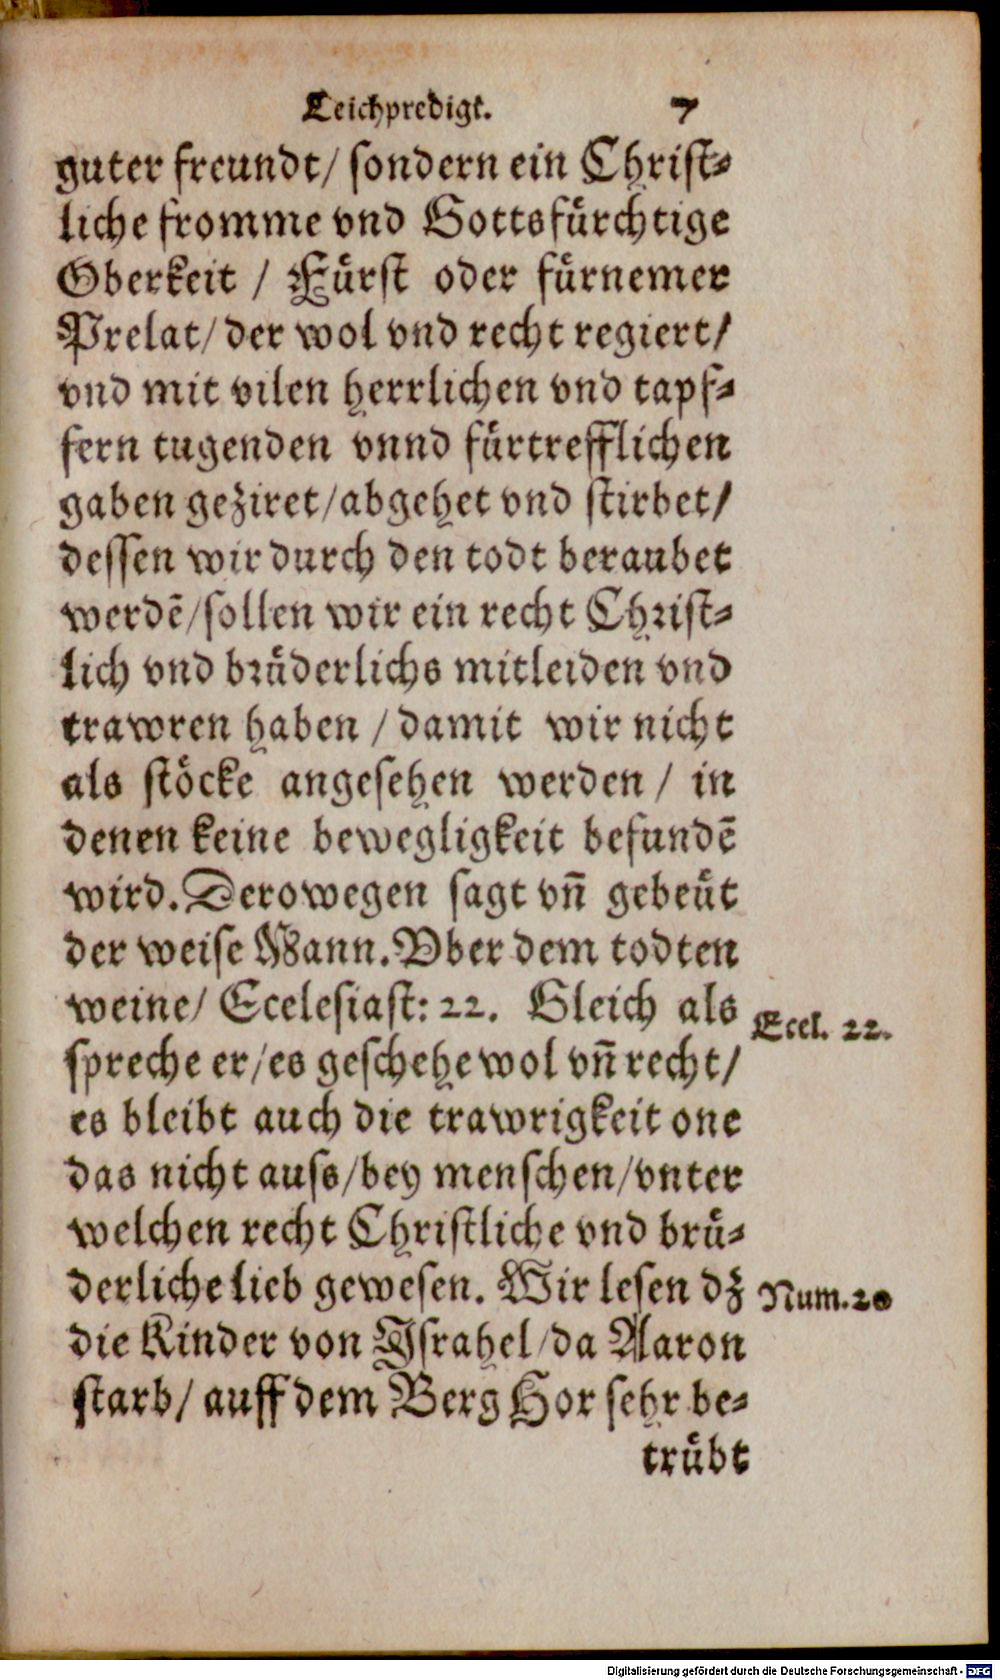 Leichpredigt. 7
guter freundt/ sondern ein Christ-
liche fromme vnd Gottsfürchtige
Oberkeit / Fürst oder fürnemer
Prelat/ der wol vnd recht regiert/
vnd mit vilen herrlichen vnd tapf-
fern tugenden vnnd fürtrefflichen
gaben geziret/abgehet vnd stirbet/
dessen wir durch den todt beraubet
werdē/sollen wir ein recht Christ-
lich vnd brüderlichs mitleiden vnd
trawren haben / damit wir nicht
als stöcke angesehen werden / in
denen keine bewegligkeit befundē
wird. Derowegen sagt vn̄ gebeüt
der weise Mann. Vber dem todten
weine/ Ecelesiast: 22. Gleich als
Eccl. 22.
spreche er/es geschehe wol vn̄ recht/
es bleibt auch die trawrigkeit one
das nicht auss/bey menschen/vnter
welchen recht Christliche vnd brü-
derliche lieb gewesen. Wir lesen dz
Num. 20
die Kinder von Israhel/da Aaron
starb/ auff dem Berg Hor sehr be-
trübt
Digitalisierung gefördert durch die Deutsche Forschungsgemeinschaft - DFG